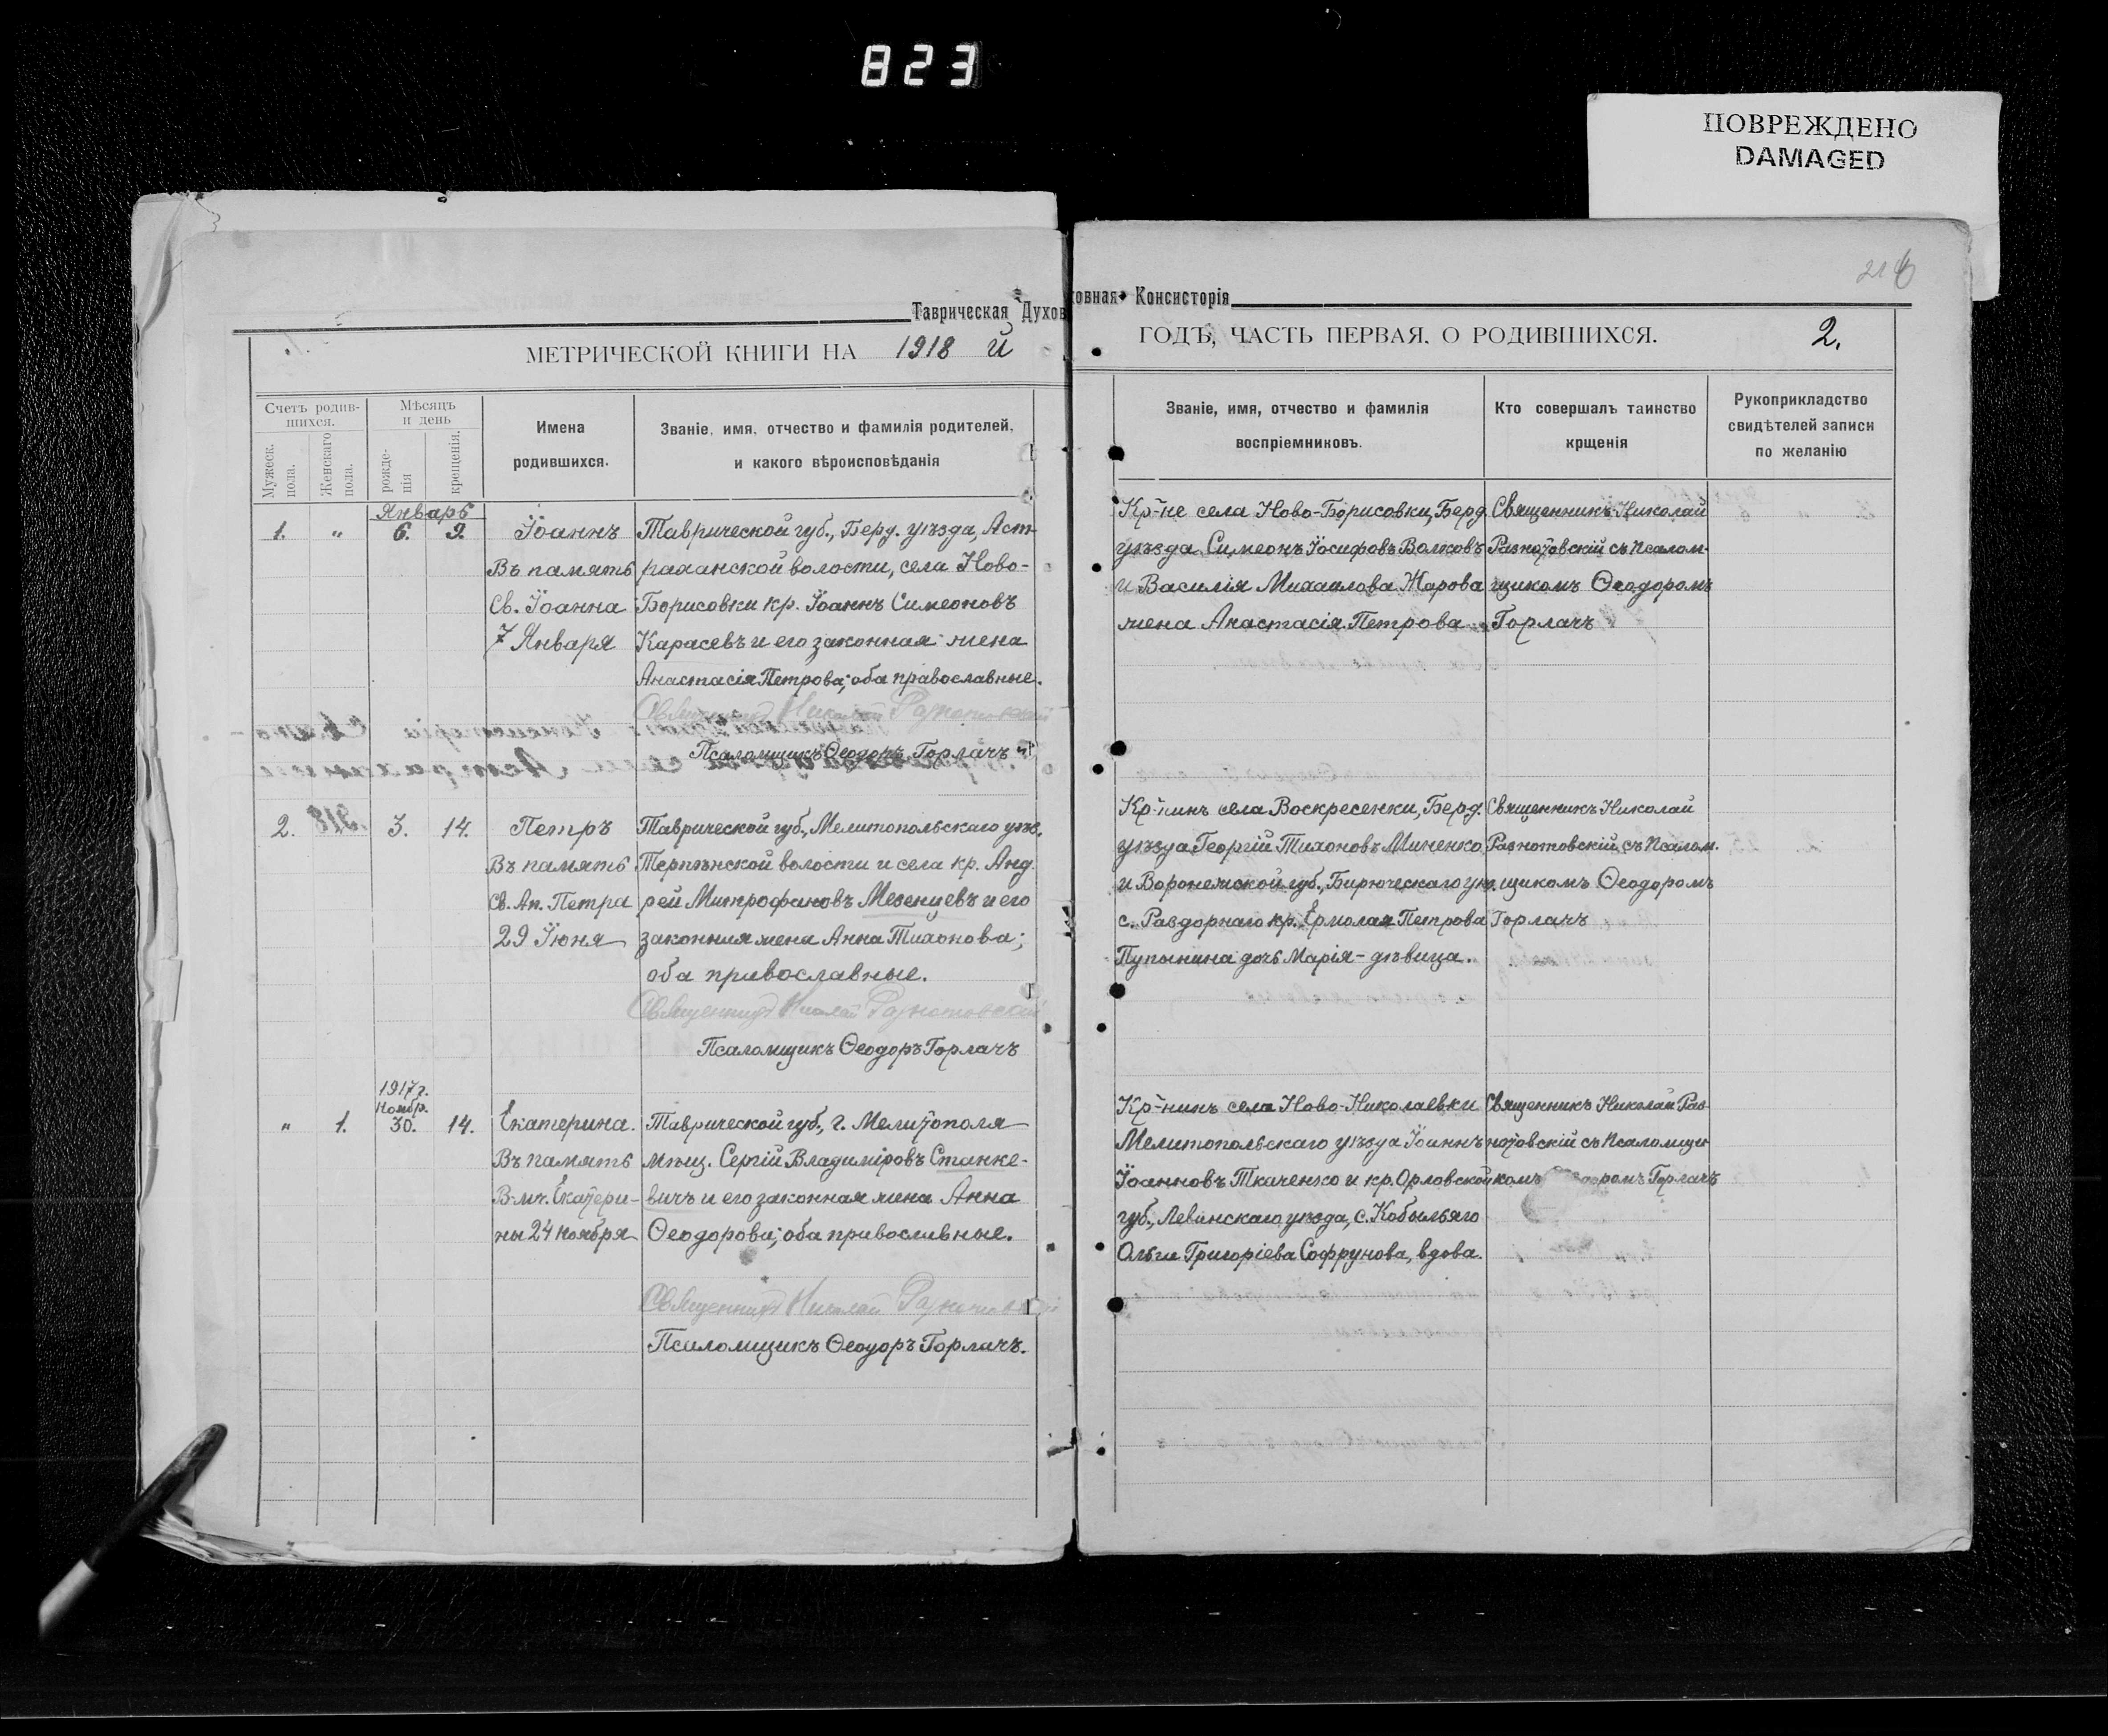 823
ПОВРЕЖДЕНО
DAMAGED
Таврическая Духовная Консисторія
МЕТРИЧЕСКОЙ КНИГИ НА 1918 й
Счетъ родив-
шихся.
Мужеск. пола.
Женскаго пола.
Мѣсяцъ
и день
рожде-
нія
крещенія.
Имена
родившихся.
Званіе, имя, отчество и фамилія родителей,
и какого вѣроисповѣданія
Январь
1. " 6. 9. Іоаннъ
Въ память
Св. Іоанна
7 Января
Таврической губ., Берд. уѣзда, Аст-
раханской волости, села Ново-
Борисовки кр. Іоаннъ Симеоновъ
Карасевъ и его законная жена
Анастасія Петрова; оба православные.
Священникъ Николай
Псаломщикъ Ѳеодоръ Горлачъ
2. 3. 14. Петръ
Въ память
Св. Ап. Петра
29 Іюня
Таврической губ., Мелитопольскаго уѣз.
Терпѣнской волости и села кр. Анд-
рей Митрофановъ Мезенцевъ и его
законная жена Анна Тихонова;
оба православные.
Священникъ Николай Разнотовскій
Псаломщикъ Ѳеодоръ Горлачъ
1917 г.
Ноябр.
" 1. 30. 14. Екатерина.
Въ память
В-мч. Екатери-
ны 24 Ноября
Таврической губ., г. Мелитополя
мѣщ. Сергій Владиміровъ Станке-
вичъ и его законная жена Анна
Ѳеодорова; оба православные.
Священникъ Николай
Псаломщикъ Ѳеодоръ Горлачъ.
ГОДЪ, ЧАСТЬ ПЕРВАЯ, О РОДИВШИХСЯ.
2.
Званіе, имя, отчество и фамилія
воспріемниковъ.
Кто совершалъ таинство
крщенія
Рукоприкладство
свидѣтелей записи
по желанію
Кр-не села Ново-Борисовки, Берд.
уѣзда Симеонъ Іосифовъ Волковъ
и Василія Михаилова Жарова
жена Анастасія Петрова
Священникъ Николай
Разнотовскій съ Псалом-
щикомъ Ѳеодоромъ
Горлачъ
Кр-нинъ села Воскресенки, Берд.
уѣзда Георгій Тихоновъ Миненко
и Воронежской губ., Бирюческаго уѣз.
с. Раздорнаго кр. Ермолая Петрова
Пупынина дочь Марія - дѣвица.
Священникъ Николай
Разнотовскій съ Псалом-
щикомъ Ѳеодоромъ
Горлачъ
Кр-нинъ села Ново-Николаевки
Мелитопольскаго уѣзда Іоаннъ
Іоанновъ Ткаченко и кр. Орловской
губ., Левинскаго уѣзда, с. Кобыльяго
Ольга Григоріева Софрунова, вдова.
Священникъ Николай Раз-
нотовскій съ Псаломщи-
комъ Ѳеодоромъ Горлачъ